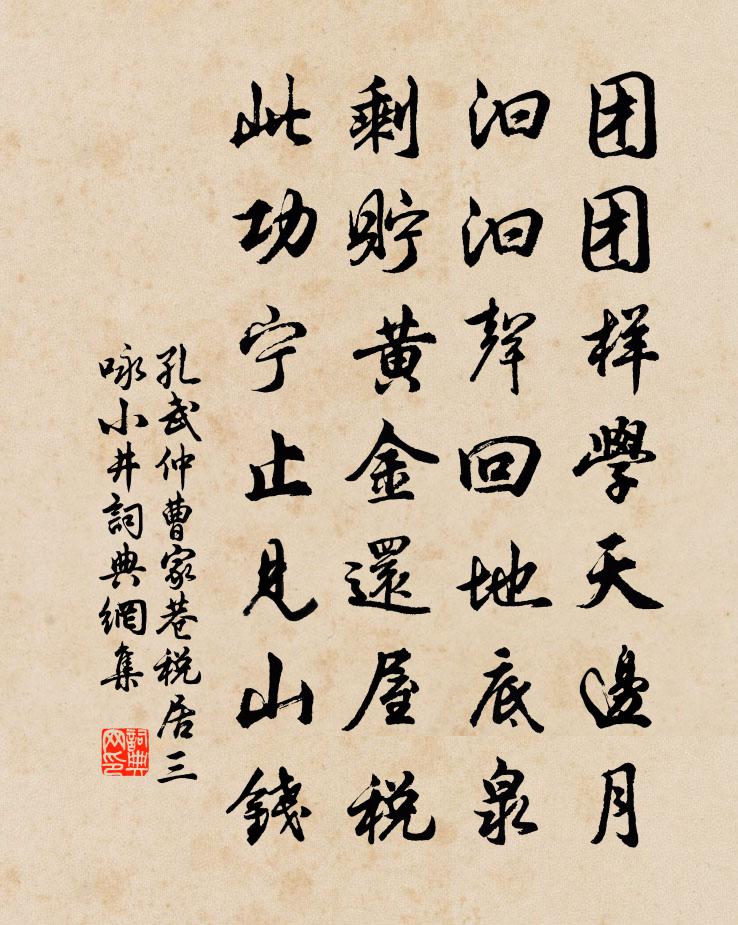 团团样學天邊月
汩汩聲回地底泉
剩貯黄金還屋税
此功宁止見山錢
孔武仲曹家巷税居三
咏小井詞典網集
詞典
网印